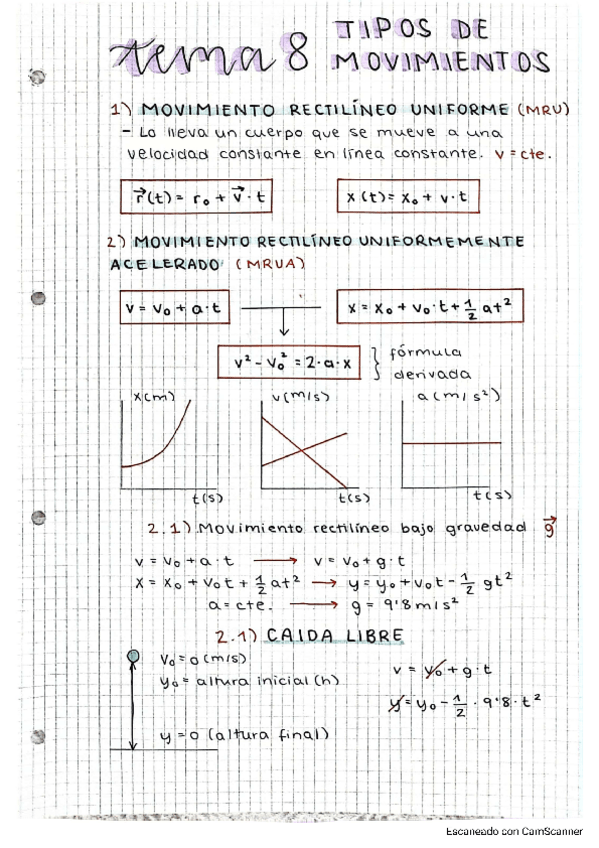 tema 8 TIPOS DE
MOVIMIENTOS
1) MOVIMIENTO RECTILÍNEO UNIFORME (MRU)
- Lo lleva un cuerpo que se mueve a una
velocidad constante en línea constante. v = cte.
r⃗(t) = r₀ + v⃗ · t
x(t) = x₀ + v · t
2) MOVIMIENTO RECTILÍNEO UNIFORMEMENTE
ACELERADO (MRUA)
v = v₀ + a · t
x = x₀ + v₀ · t + 1/2 at²
v² - v₀² = 2 · a · x } fórmula
derivada
x(m) v(m/s) a(m/s²)
t(s) t(s) t(s)
2.1) Movimiento rectilíneo bajo gravedad g⃗
v = v₀ + a · t → v = v₀ + g · t
x = x₀ + v₀t + 1/2 at² → y = y₀ + v₀t - 1/2 gt²
a = cte. → g = 9'8 m/s²
2.1) CAIDA LIBRE
v₀ = 0 (m/s)
y₀ = altura inicial (h)
y = 0 (altura final)
v = v₀ + g · t
y = y₀ - 1/2 · 9'8 · t²
Escaneado con CamScanner